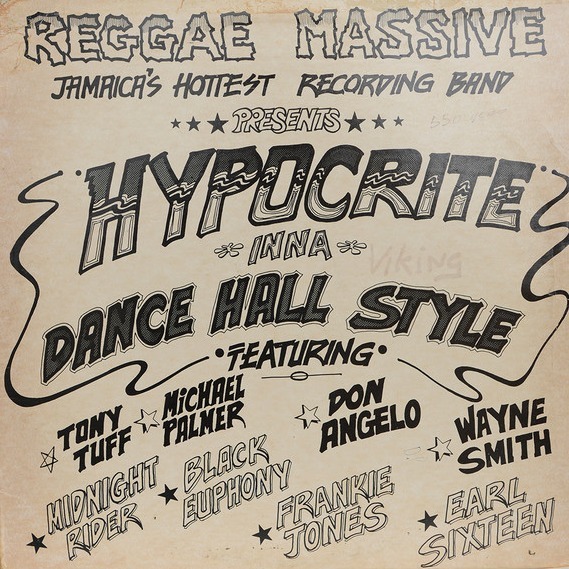 REGGAE MASSIVE
JAMAICA'S HOTTEST RECORDING BAND
PRESENTS
HYPOCRITE
INNA
Viking
DANCE HALL STYLE
FEATURING
TONY TUFF
MICHAEL PALMER
DON ANGELO
WAYNE SMITH
MIDNIGHT RIDER
BLACK EUPHONY
FRANKIE JONES
EARL SIXTEEN